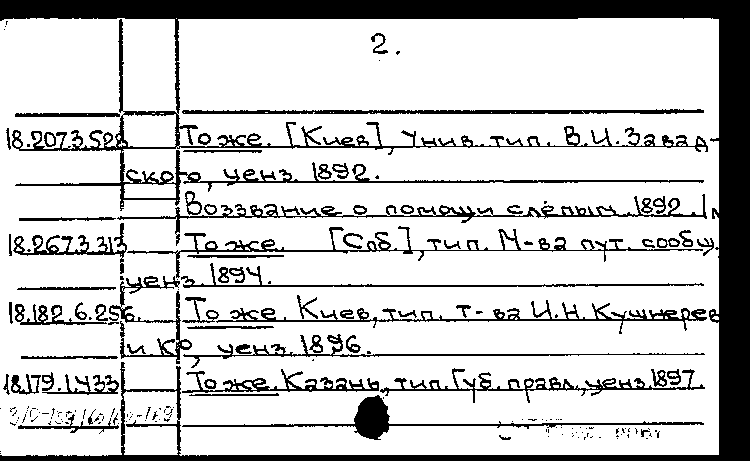 2.
18.207.3.528 То же. [Киев], Унив. тип. В.И. Завад-
ского, ценз. 1892.
Воззвание о помощи слепым. 1892.
18.267.3.313 То же. [Спб.], тип. М-ва пут. сообщ.
ценз. 1894.
18.182.6.256. То же. Киев, тип. т-ва И.Н. Кушнерев
и К°, ценз. 1896.
18.179.1.433 То же. Казань, тип. Губ. правл., ценз. 1897.